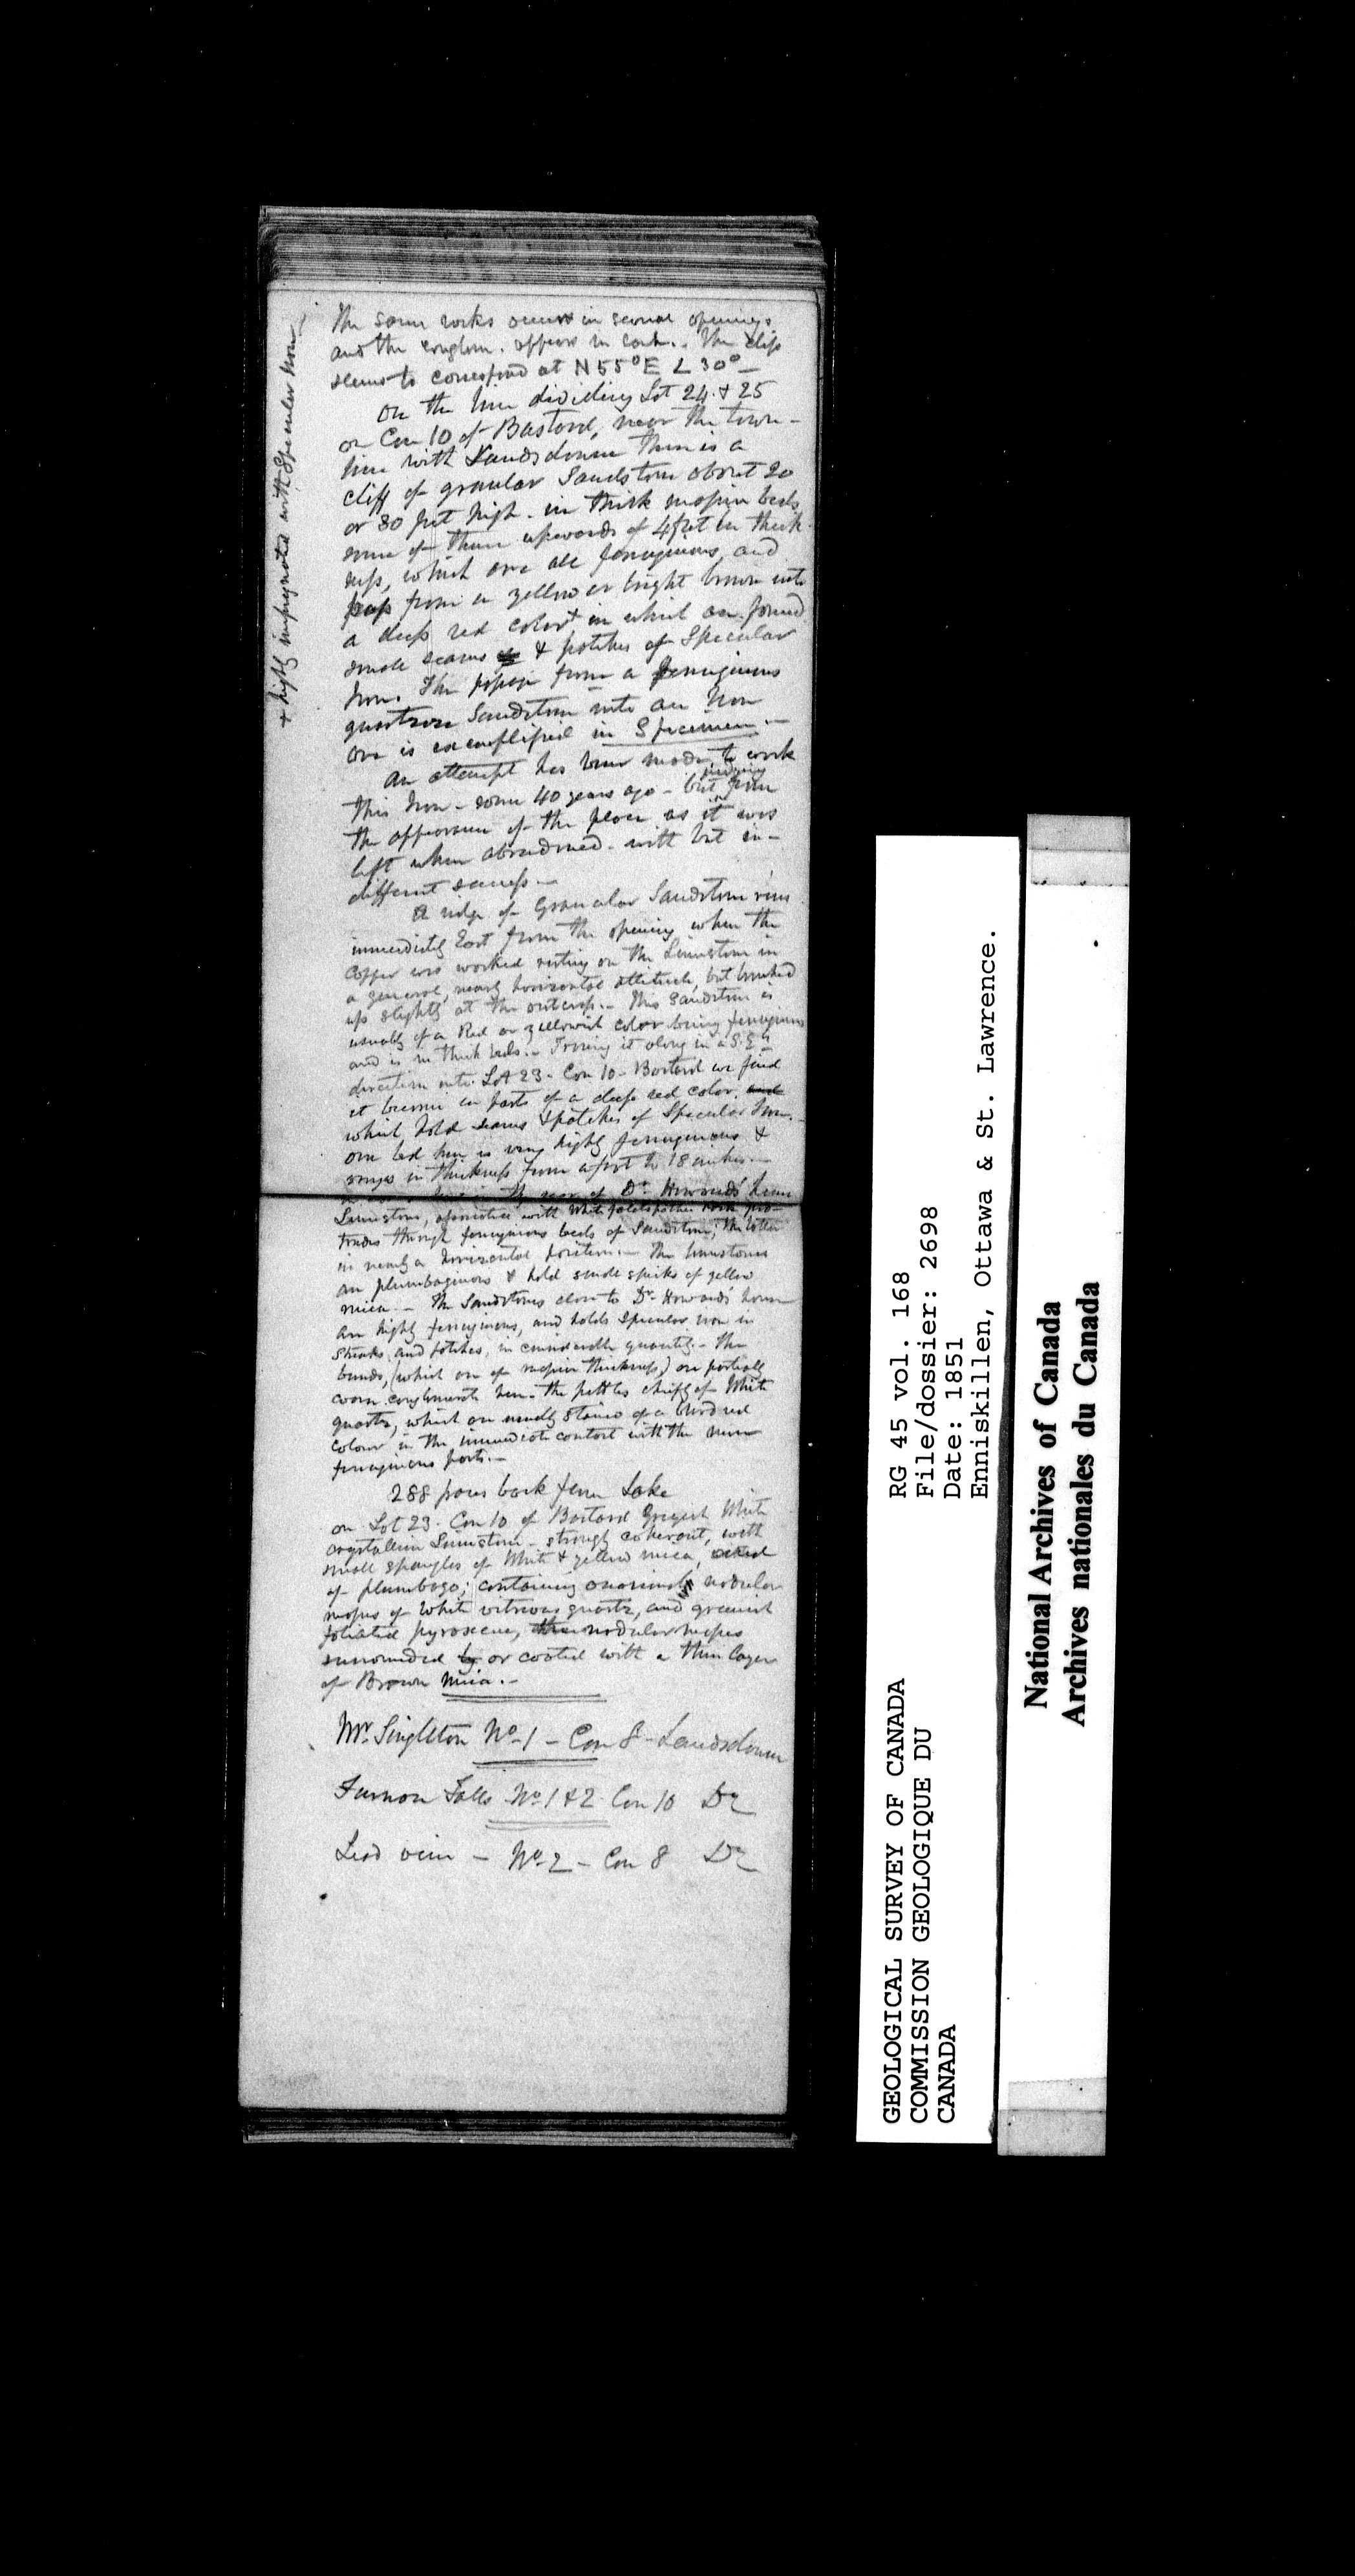 The same rocks occur in several openings
and the conglom. appears in each. The dip
seems to correspond at N 55° E ∠ 30° —
On the line dividing Lot 24 & 25
on Con 10 of Bastard, near the town-
line with Landsdowne there is a
cliff of granular Sandstone about 20
or 30 feet high. in thick massive beds
some of them upwards of 4 feet in thick-
ness, which are all ferruginous, and
pass from a yellow or bright brown into
a deep red color + in which are found
small seams & patches of Specular
Iron. The passage from a ferruginous
quartzose Sandstone into an Iron
ore is exemplified in Specimen —
+ highly impregnated with Specular Iron
An attempt has been made to work
this Iron – some 40 years ago – but judging from
the appearance of the place as it was
left when abandoned. with but in-
different success —
A ridge of Granular Sandstone runs
immediately East from the opening where the
Copper was worked resting on the Limestone in
a general, nearly horizontal attitude, but
up slightly at the outcrop. – This Sandstone is
usually of a Red or yellowish color being ferruginous
and is in thick beds. – Tracing it along in a S.E.
direction into Lot 23 – Con 10 – Bastard we find
it become in parts of a deep red color. and
which hold seams & patches of Specular Iron.
One bed here is very highly ferruginous &
ranges in thickness from a foot to 18 inches. —
the rear of Dr. Howard's house
Limestone, associated with White feldspathic rock pro-
trudes through ferruginous beds of Sandstone; the latter
in nearly a horizontal position. — The limestones
are plumbaginous & hold small specks of yellow
mica. — The Sandstones close to Dr. Howard's house
are highly ferruginous, and holds Specular iron in
streaks and patches, in considerable quantity. – The
bands, (which are of massive thickness) are partially
coarse conglomerate here. The pebbles chiefly of White
quartz, which are usually stained of a blood red
colour in the immediate contact with the more
ferruginous parts. —
288 paces back from Lake
on Lot 23. Con 10 of Bastard Greyish White
crystalline Limestone – strongly coherent, with
small spangles of White & yellow mica, and
of plumbago; containing occasionally nodular
masses of White vitreous quartz, and greenish
foliated pyroxene, these nodular masses
surrounded by or coated with a thin layer
of Brown Mica. —
Mr. Singleton No. 1 – Con 8 – Landsdowne
Furnace Falls No. 1 & 2 Con 10 Do
Lead vein – No. 2 – Con 8 Do
GEOLOGICAL SURVEY OF CANADA
COMMISSION GEOLOGIQUE DU
CANADA
RG 45 vol. 168
File/dossier: 2698
Date: 1851
Enniskillen, Ottawa & St. Lawrence.
National Archives of Canada
Archives nationales du Canada